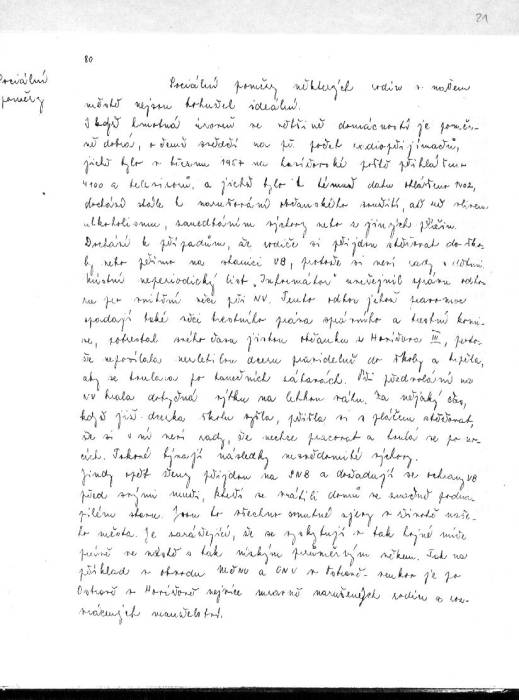 21
80
Sociální
poměry
Sociální poměry některých rodin v našem
městě nejsou bohužel ideální.
I když hmotná úroveň ve většině domácností je poměr-
ně dobrá, o čemž svědčí na př. počet radiopřijímačů,
jichž bylo v březnu 1967 na havířovské poště přihlášeno
4100 a televisorů, a jichž bylo k témuž datu ohlášeno 1402,
dochází stále k narušování občanského soužití, ať už vlivem
alkoholismu, zanedbáním výchovy nebo z jiných příčin.
Dochází k případům, že rodiče si přijdou stěžovat do ško-
ly, nebo přímo na stanici VB, protože si není rady s dětmi.
Místní neperiodický list, Informátor uveřejnil zprávu odbo-
ru pro vnitřní věci při NV. Tento odbor, jehož pravomoc
spadají také věci trestního práva správního a trestní komi-
se, potrestal svého času jistou občanku z Havířova III, proto-
že neposílala neteř dceru pravidelně do školy a trpěla,
aby se toulala po tanečních zábavách. Při předvolání na
NV brala dotyčná výtku na lehkou váhu. Za nějaký čas,
když již dcerka školu vyšla, přišla si s pláčem stěžovat,
že si s ní není rady, že nechce pracovat a toulá se po no-
cích. Takové bývají následky nesvědomité výchovy.
Jindy opět ženy přijdou na SNB a dožadují se ochrany VB
před svými muži, kteří se vrátili domů ve značně podna-
pilém stavu. Jsou to všechno smutné zjevy v životě naše-
ho města. Je zarážející, že se vyskytují v tak hojné míře
právě ve městě s tak nízkým průměrným věkem. Tak na
příklad v obvodu MěNV a ONV v Ostravě-venkov je po
Ostravě v Havířově nejvíce mravně narušených rodin a roz-
vrácených manželství.